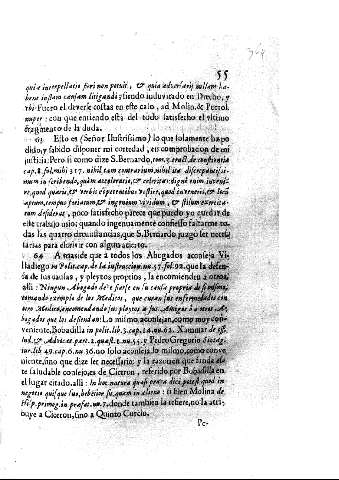 55
quia interpellatio fieri non potuit, & quia adversarius nullam ha-
bent iustam causam litigandi; siendo induvitado en Drecho, y
ubi Fuero el deverse costas en este caso, ad Molin. & Portol.
nuper: con que entiendo està del todo satisfecho el ultimo
fragmento de la duda.
63 Esto es (Señor Ilustrissimo) lo que solamente ha po
dido, y sabido disponer mi cortedad, en comprobacion de mi
justicia: Pero si como dize S. Bernardo,
cap. 8. fol. mihi 317. nihil tam contrarium, nihil ita
num in scribendo, quàm acceleratio, & celeritas:
do, quod quærit, & verbis
aptum, tempus
tum desiderat, poco satisfecho parece que puedo yo quedar de
este trabajo mio; quando ingenuamente confiesso faltarme to-
das las quatro circunstancias, que S. Bernardo juzgo ser neces-
sarias para escrivir con algun acierto.
64 Amas de que a todos los Abogados aconseja Vi-
lladiego in Polit. cap. de la instruccion. nu. 57. fol. 92. que la defen-
sa de sus causas, y pleytos proprios, la encomienden a otros,
alli: Ningun Abogado de se fiarse en su causa propria de si mismo,
tomando exemplo de los Medicos, que curan sus enfermedades con
otro Medico, encomendando sus pleytos a sus Amigos ò otros A-
bogados que los defiendan: Lo mismo aconsejan, como muy con-
veniente, Bobadilla in polit. lib. 3. cap. 14. nu. 62. Xammar de off.
Iud. & Advocat. part. 2. quæst. 1. nu. 55. y Pedro Gregorio Sintag-
tur. lib. 49. cap. 6. nu. 36. no solo aconseja lo mismo, como conve
niente, sino que dize ser necessario; y la razon en que funda es-
te saludable consejo, es de Ciceron, referido por Bobadilla en
el lugar citado, alli: In hoc natura quasi prava dici potest, quod in
negotio quisque suo, hebetior sit, quam in alieno: si bien Molina de
Hisp. primog. in præfat. nu. 7. donde tambien la refiere, no la atri-
buye a Ciceron, sino a Quinto Curcio.
Pe-